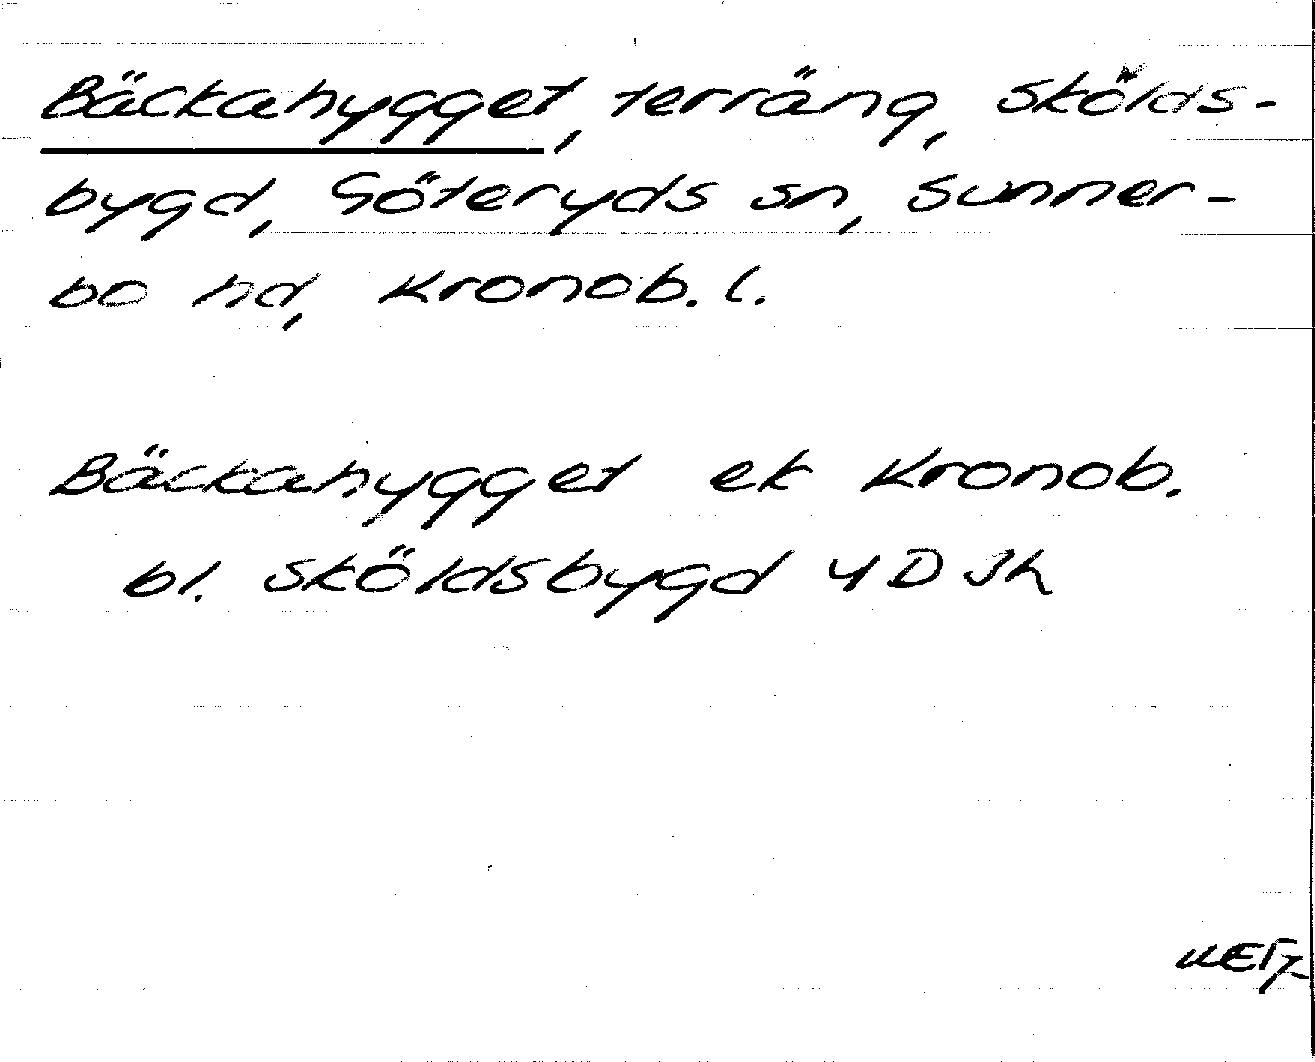 Bäckahygget, terräng, Skölds-
bygd, Göteryds sn, Sunner-
bo hd, Kronob. l.
Bäckahygget ek Kronob.
bl. Sköldsbygd 4D 3h